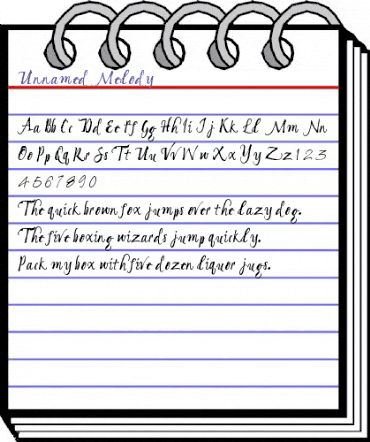 Unnamed Melody
Aa Bb Cc Dd Ee Ff Gg Hh Ii Jj Kk Ll Mm Nn
Oo Pp Qq Rr Ss Tt Uu Vv Ww Xx Yy Zz 1 2 3
4 5 6 7 8 9 0
The quick brown fox jumps over the lazy dog.
The five boxing wizards jump quickly.
Pack my box with five dozen liquor jugs.